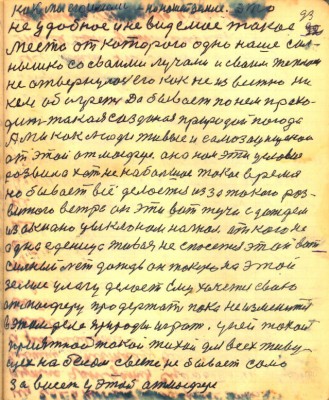 как мы его и понятие. это
93
не удобное и не видемое такое
место от которого одно наше сол
нышко со своими лучами и своим теплом
не отвернулось его как не из вестно ни
кем обогреть Да бывает по нем прахо
дит такая созданая природой погода
А мы как люди живые и самозащищаемся
от этой атмосферы. она нам эти условия
развила хотя не на большое такое время
но бывает всё делается из за такого раз
витого ветра он эти вот тучи с дождем
из океана на нас. от кого не
одна еденица живая не спасется этот вот
сильный дождь он такую на этой
земле влагу делает ему хочется свою
атмосферу продержать пока не изменится
в этом деле природы играт. у ней такой
приятной такой тихой для всех живу
щех на белом свете не бывает само
за висет у этой атмосфере